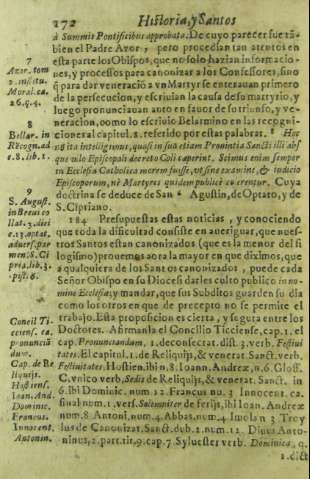 172 Historia, y Santos
à Summis Pontificibus approbata. De cuyo parecer fue tã-
bien el Padre Azor, pero procedian tan atentos en
esta parte los Obispos, que no solo hazian informacio-
nes, y processos para canonizar a los Confessores, sino
q̃ para dar veneraciõ a vn Martyr se enterauan primero
de la persecucion, y escriuian la causa de su martyrio, y
luego pronunciauan auto en fauor de su triunfo, y ve-
neracion, como lo escriuio Belarmino en las recogni-
ciones al capitul. 8. referido por estas palabras. Hoc
ita intelligimus, quasi in sua etiam Prouintia Sancti illi abs
que vllo Episcopali decreto Coli cæperint. Scimus enim semper
in Ecclesia Catholica morem fuisse, vt sine examine, & iudicio
Episcoporum, nè Martyres quidem publicè co erentur. Cuya
doctrina se deduce de San Agustin, de Optato, y de
S. Cipriano.
184 Presupuestas estas noticias, y conociendo
que toda la dificultad consiste en aueriguar, que nues-
tros Santos estan canonizados (que es la menor del si
logismo) prouemos aora la mayor en que diximos, que
a qualquiera de los Santos canonizados, puede cada
Señor Obispo en su Diocesi darles culto publico in no-
mine Ecclesiæ, y mandar, que sus subditos guarden su dia
como los otros en que de precepto no se permite el
trabajo. Esta proposicion es cierta, y segura entre los
Doctores. Afirmanla el Concilio Ticciense, cap. 1. el
cap. Pronunciandum, 1. de consecrat. dist. 3. verb. Festiui
tates. El capitul. 1. de Reliquijs, & venerat. Sanct. verb.
Festiuitates. Hostien. ibi n. 8. Ioann. Andrex, n. 6. Gloss.
C. vnico verb, Sedis de Reliquijs, & venerat. Sanct. in
6. ibi Dominic. num. 12. Francus nu. 3 Innocent. ca.
final num. 1. vers. Solemniter de ferijs, ibi Ioan. Andrex
num. 8 Antoni. num. 4. Abbas. num. 4
lus de Canonizat. Sanct. dub. 2. num. 12. Diuus Anto-
ninus, 2. part. tit. 9. cap. 7 Syluester verb. Dominica, q.
1. dict
7
Azor. tom
2. institu.
Moral. ca.
26. q. 4.
8
Bellar. in
Recogn. ad
c. 8. lib. 1.
9
S. August.
in Breuis co
llat. 3. diei
c. 13. optat.
aduers. par
men. S. Ci
pria. lib. 3.
pist. 6.
Concil Ti-
ciens. ca.
pronunciã
dum.
Cap. de Re
liquijs.
Hostiens.
Ioan. And.
Dominic.
Francus.
Innocent.
Antonin.